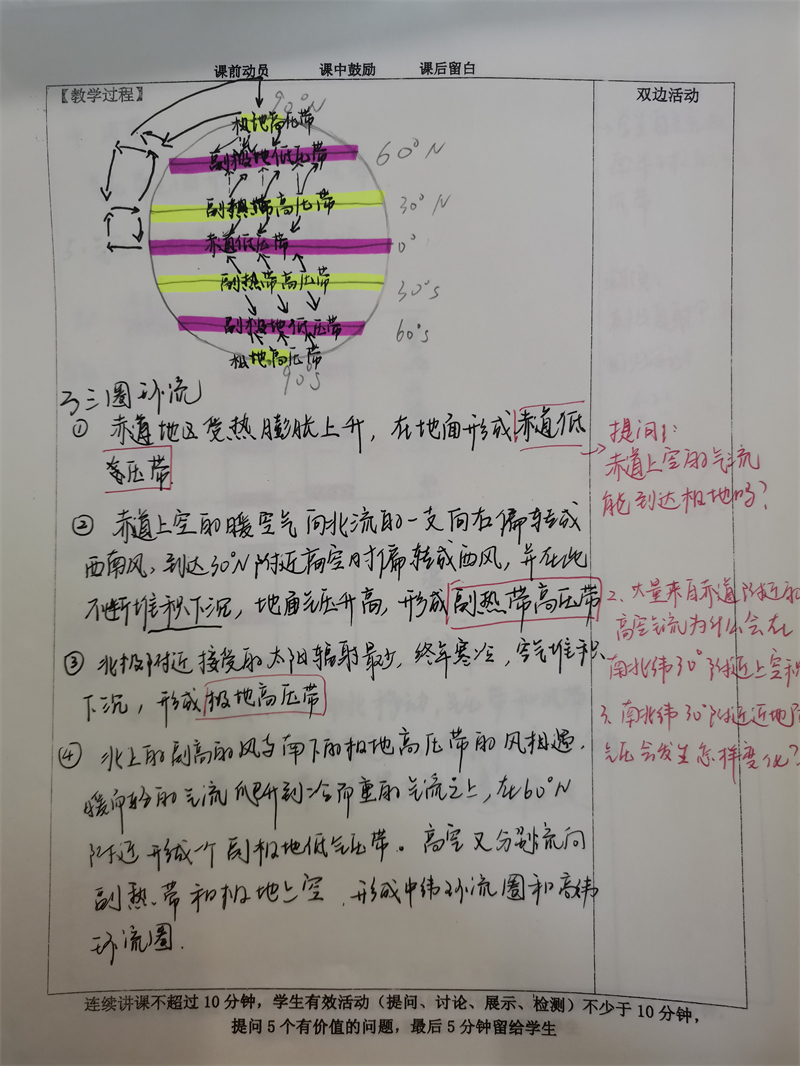 课前动员 课中鼓励 课后留白
【教学过程】
双边活动
90°N
极地高压带
副极地低压带 60°N
副热带高压带 30°N
赤道低压带 0°
副热带高压带 30°S
副极地低压带 60°S
极地高压带
90°S
3 三圈环流
① 赤道地区受热膨胀上升，在地面形成赤道低
气压带
② 赤道上空的暖空气向北流的一支向右偏转成
西南风，到达30°N附近高空时偏转成西风，并在此
不断堆积下沉，地面气压升高，形成副热带高压带
③ 北极附近接受的太阳辐射最少，终年寒冷，空气堆积
下沉，形成极地高压带
④ 北上的副高的风与南下的极地高压带的风相遇．
暖而轻的气流爬升到冷而重的气流之上，在60°N
附近形成一个副极地低气压带。高空又分别流向
副热带和极地上空．形成中纬环流圈和高纬
环流圈．
提问1：
赤道上空的气流
能到达极地吗？
2、大量来自赤道附近的
高空气流为什么会在
南北纬30°附近上空积
3、南北纬30°附近近地面
气压会发生怎样变化？
连续讲课不超过10分钟，学生有效活动（提问、讨论、展示、检测）不少于10分钟，
提问5个有价值的问题，最后5分钟留给学生